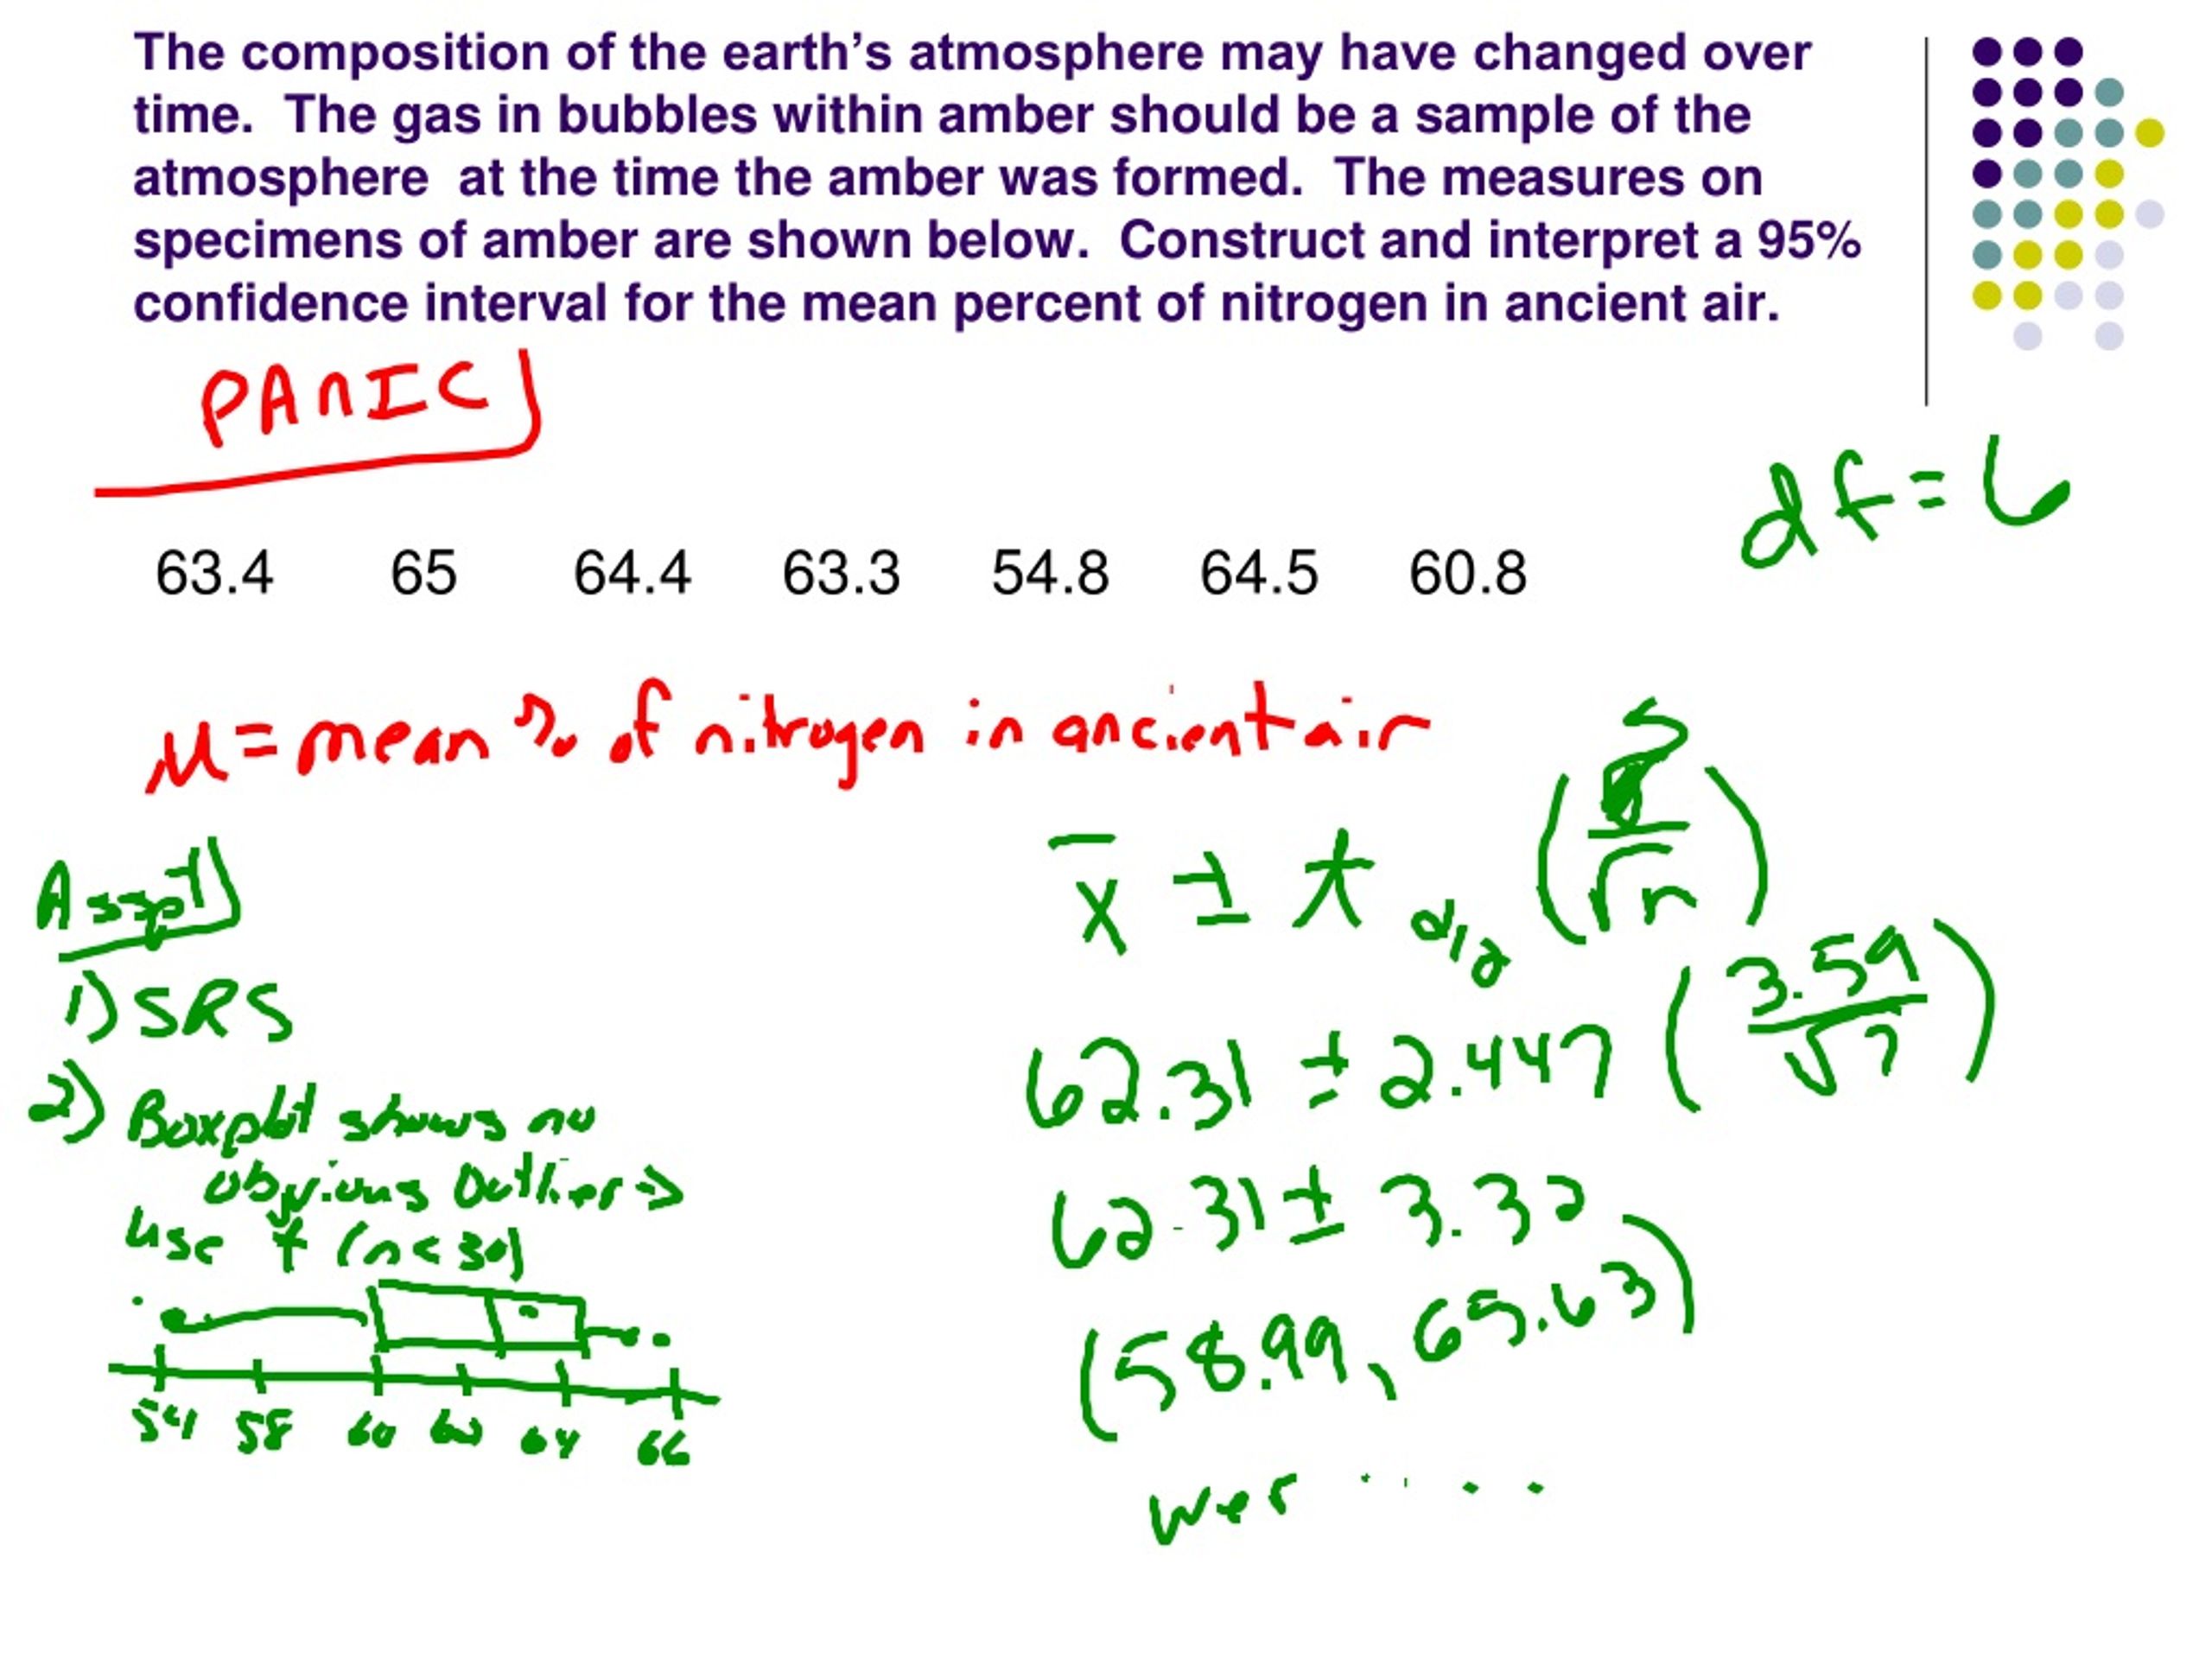 The composition of the earth’s atmosphere may have changed over
time. The gas in bubbles within amber should be a sample of the
atmosphere at the time the amber was formed. The measures on
specimens of amber are shown below. Construct and interpret a 95%
confidence interval for the mean percent of nitrogen in ancient air.
PANIC
df = 6
63.4 65 64.4 63.3 54.8 64.5 60.8
μ = mean % of nitrogen in ancient air
Asspt
1) SRS
2) Boxplot shows no
obvious outliers ⇒
use t (n < 30)
54 58 60 62 64 66
x̄ ± t α/2 (s/√n)
62.31 ± 2.447 (3.59/√7)
62.31 ± 3.32
(58.99, 65.63)
we r . . . .